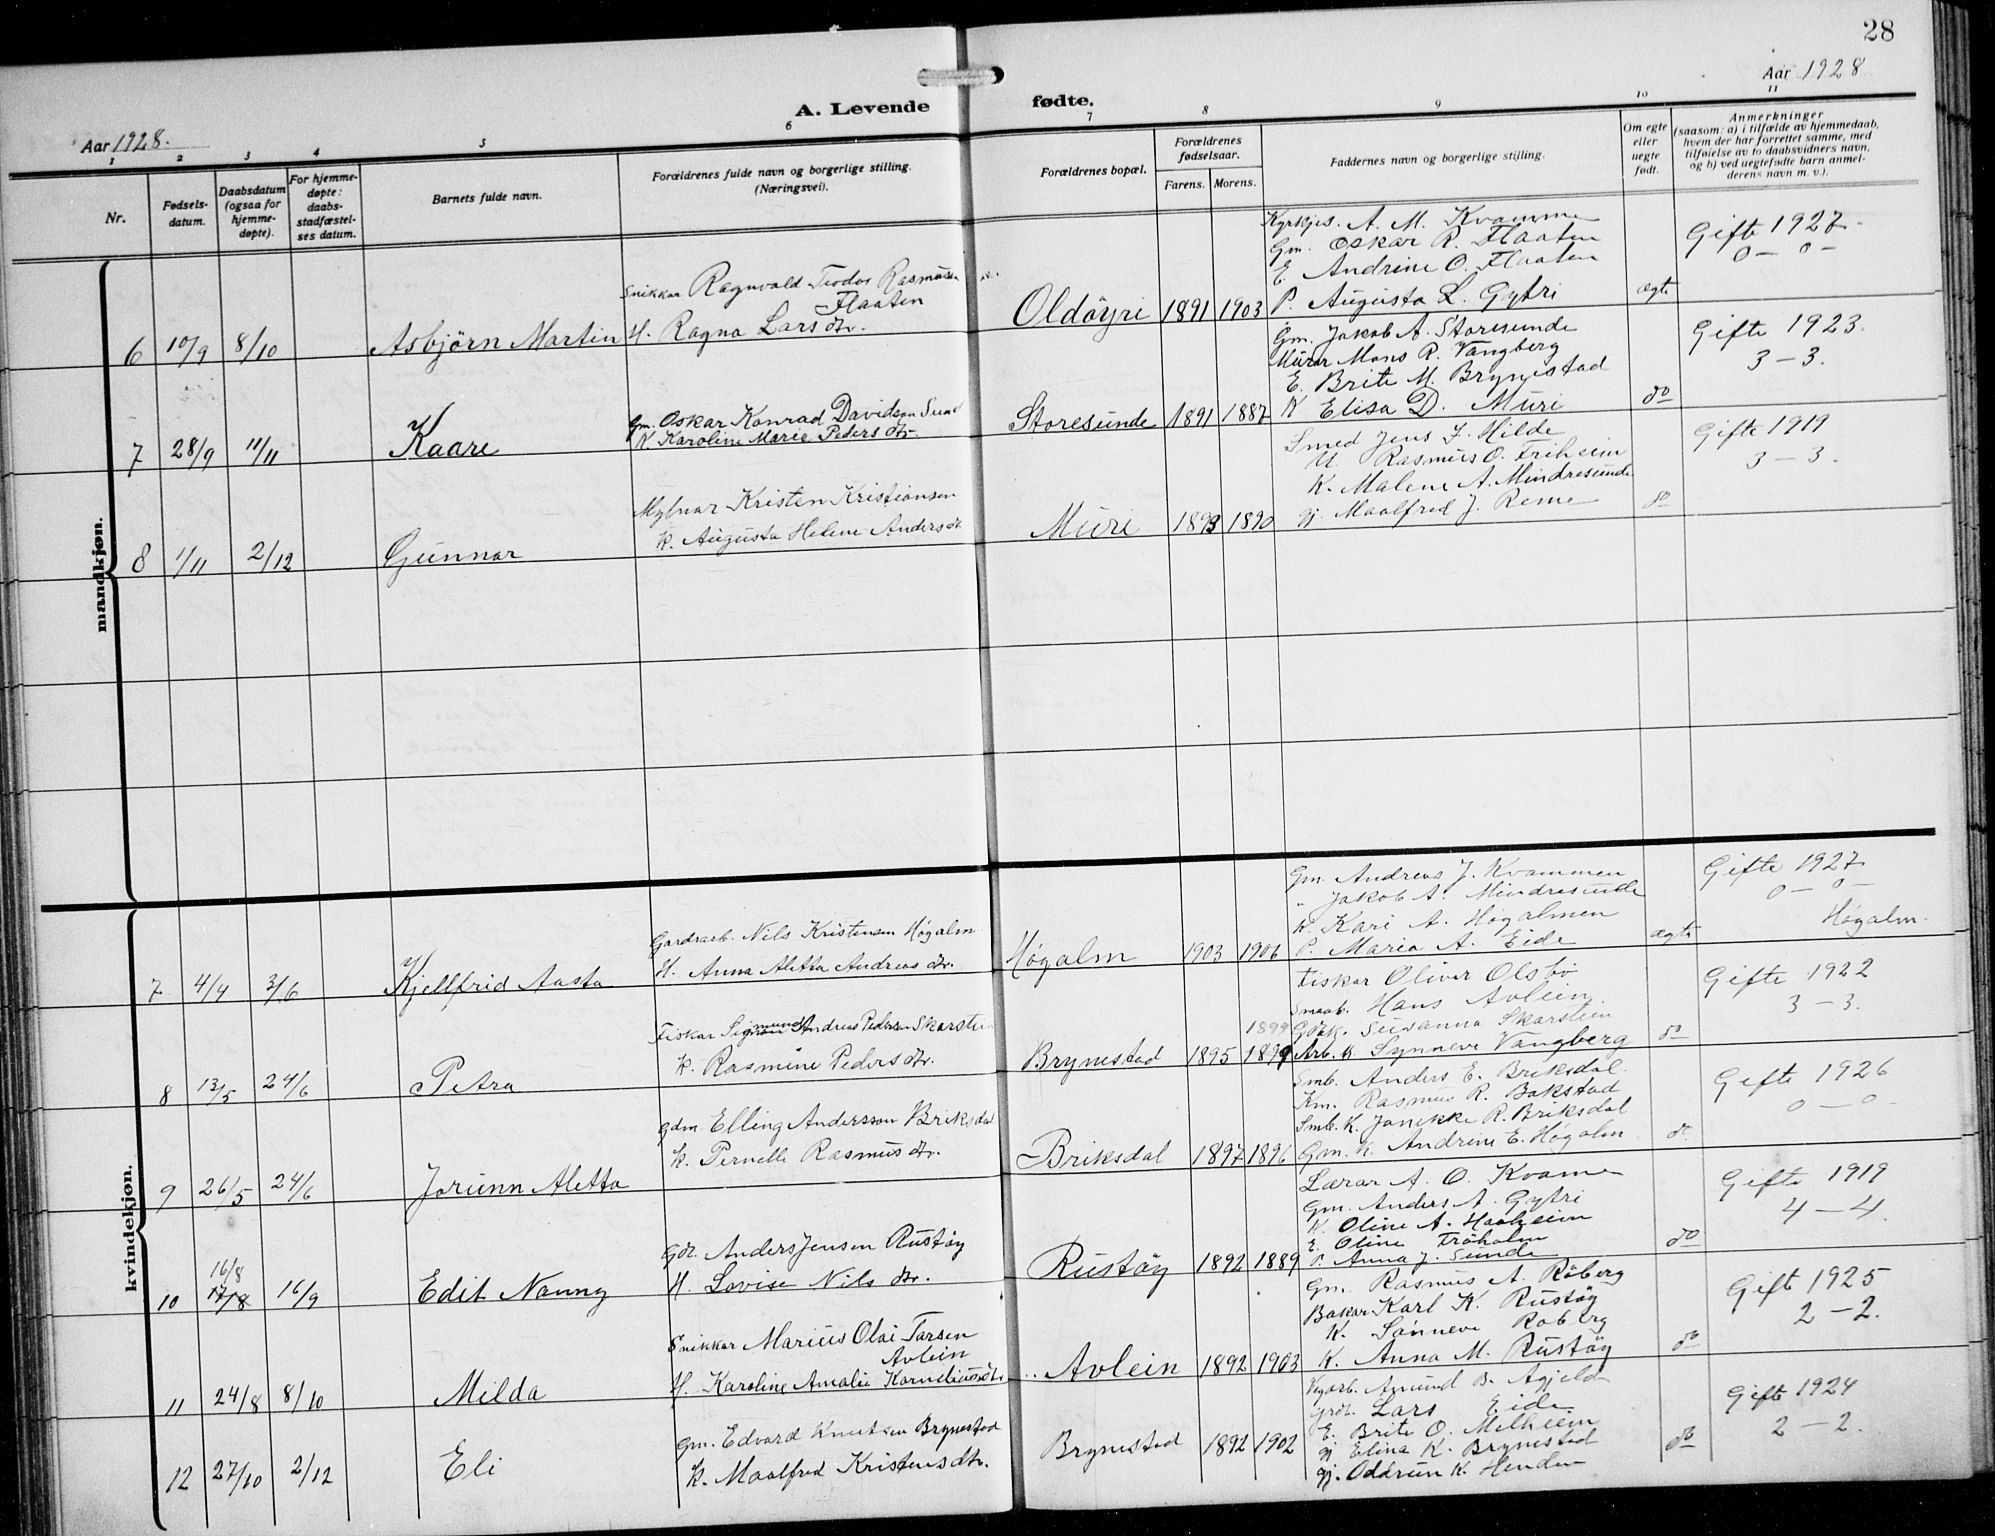 28
Aar 1928.
Aar 1928
A. Levende fødte.
1 2 3 4 5 6 7 8 9 10 11
Nr.
Fødsels-
datum.
Daabsdatum
(ogsaa for
hjemme-
døpte).
For hjemme-
døpte:
daabs-
stadfæstel-
ses datum.
Barnets fulde navn.
Forældrenes fulde navn og borgerlige stilling.
(Næringsvei).
Forældrenes bopæl.
Forældrenes
fødselsaar.
Farens. Morens.
Faddernes navn og borgerlige stilling.
Om egte
eller
uegte
født.
Anmerkninger
(saasom: a) i tilfælde av hjemmedaab,
hvem der har forrettet samme, med
tilføielse av to daabsvidners navn,
og b) ved uegtefødte barn anmel-
derens navn m. v.).
mandkjøn.
6 10/9 8/10 Asbjørn Martin
Snikkar Ragnvald Teodor Rasmussen
Flaaten
H. Ragna Larsdtr.
Oldöyri 1891 1903
Kyrkjes. A. M. Kvamme
Gm. Oskar R. Flaaten
E Andrine O. Flaaten
P. Augusta L. Gytri
ægte
Gifte 1927.
0 — 0 —
7 28/9 11/11 Kaare
Gm. Oskar Konrad Davidson Sunde
K. Karoline Marie Pedersdtr.
Storesunde 1891 1887
Gm. Jakob A. Storesunde
Murar Mons R. Vangberg
E. Brite M. Brynestad
K Elisa D. Muri
do
Gifte 1923.
3 — 3.
8 1/11 2/12 Gunnar
Mylnar Kristen Kristiansen
K. Augusta Helene Andersdtr
Muri 1893 1890
Smed Jens J. Hilde
U. Rasmus O. Friheim
K. Malene A. Mindresunde
Gj. Maalfred J. Reme
do
Gifte 1919
3 — 3.
kvindekjøn.
7 4/4 3/6 Kjellfrid Aasta
Gardsarb. Nils Kristensen Høgalm
H. Anna Aletta Andreasdtr.
Høgalm 1903 1906
Gm. Andreas J. Kvammen
" Jakob A. Mindresunde
K. Kari A. Høgalmen
P. Maria A. Eide
ægte
Gifte 1927
0 — 0 —
Høgalm.
8 13/5 24/6 Petra
Fiskar Sigmund Andreas Pedersen Skarstein
K. Rasmine Pedersdtr.
Brynestad 1895 1899
1899
Fiskar Oliver Olsbö
Smaab. Hans Avlein.
Gdbk. Susanna Skarstein
Arb. K. Synneve Vangberg
do
Gifte 1922
3 — 3.
9 26/5 24/6 Jorunn Aletta
Gdm. Elling Andersson Briksdal
K. Pernelle Rasmusdtr.
Briksdal 1897 1896
Smb. Anders E. Briksdal.
Km. Rasmus R. Bakstad
Smb. K. Janikke R. Briksdal
Gm. K. Andrine E. Høgalm
do.
Gifte 1926
0 — 0 —
10 16/8 17/8 16/9 Edit Nanny
Gdr. Anders Jensen Rustöy
H. Lovise Nilsdtr.
Rustöy 1892 1889
Lærar A. O. Kvame
Gm. Anders A. Gytri
K. Oline A. Haaheim
E. Oline Fröholm
P. Anna J. Sunde
do
Gifte 1919
4 — 4.
11 24/8 8/10 Milda
Snikkar Marius Olai Tarsen
Avlein
H. Karoline Amalie Korneliusdtr.
Avlein 1892 1903
Gm. Rasmus A. Röberg
Bakar Karl K. Rustöy
K. Sönneve Roberg
K. Anna M. Rustöy
do
Gift 1925
2 — 2.
12 27/10 2/12 Eli
Gm. Edvard Knutsen Brynestad
K. Maalfred Kristensdtr.
Brynestad 1892 1902
Vegarb. Amund B. Agjeld
Grdr. Lars Eide
E. Brite O. Melheim
Gj Elina K. Brynestad
Gj. Oddrun K. Henden
do
Gifte 1924
2 — 2.